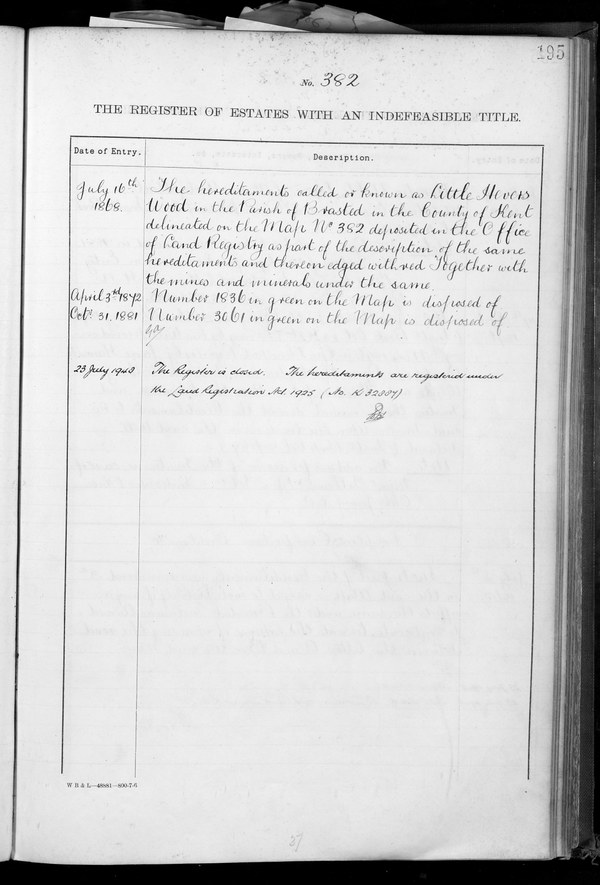 195
No. 382
THE REGISTER OF ESTATES WITH AN INDEFEASIBLE TITLE.
Date of Entry.
Description.
July 16th 1868.
The hereditaments called or known as Little Hovers
Wood in the Parish of Brasted in the County of Kent
delineated on the Map No 382 deposited in the Office
of Land Registry as part of the description of the same
hereditaments and thereon edged with red Together with
the mines and minerals under the same.
April 3rd 1872 Number 1836 in green on the Map is disposed of
Octr 31. 1881 Number 3061 in green on the Map is disposed of
23 July 1948 The Register is closed. The hereditaments are registered under
the Land Registration Act 1925 (No. K 32887)
W B & L—48981—800-7-6
37